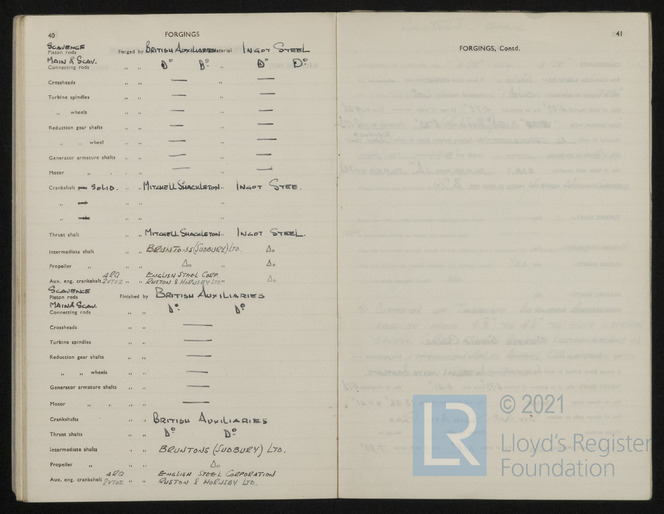 40
FORGINGS
SCAVENGE
Piston rods Forged by BRITISH AUXILIARIES Material INGOT STEEL
MAIN & SCAV.
Connecting rods " " Do Do " Do Do
Crossheads " " — " —
Turbine spindles " " — " —
" wheels " " — " —
Reduction gear shafts " " — " —
" " wheel " " — " —
Generator armature shafts " " — " —
Motor " " " — " —
Crankshaft — SOLID. " " MITCHELL SHACKLETON " INGOT STEE.
" — " " "
" — " " "
Thrust shaft " " MITCHELL SHACKLETON " INGOT STEEL.
Intermediate shaft " " BRUNTONS (SUDBURY) LTD. Do
Propeller " " " Do Do
4RQ ENGLISH STEEL CORP.
Aux. eng. crankshaft " RUSTON & HORNSBY LTD Do
SCAVENGE
Piston rods Finished by BRITISH AUXILIARIES
MAIN & SCAV.
Connecting rods " " Do Do
Crossheads " " —
Turbine spindles " " —
Reduction gear shafts " " —
" " wheels " " —
Generator armature shafts " " —
Motor " " " " —
Crankshafts " " BRITISH AUXILIARIES
Thrust shafts " " Do Do
Intermediate shafts " " BRUNTONS (SUDBURY) LTD.
Propeller " " " Do
4RQ ENGLISH STEEL CORPORATION
Aux. eng. crankshaft " RUSTON & HORNSBY LTD.
41
FORGINGS, Contd.
LR
© 2021
Lloyd's Register
Foundation